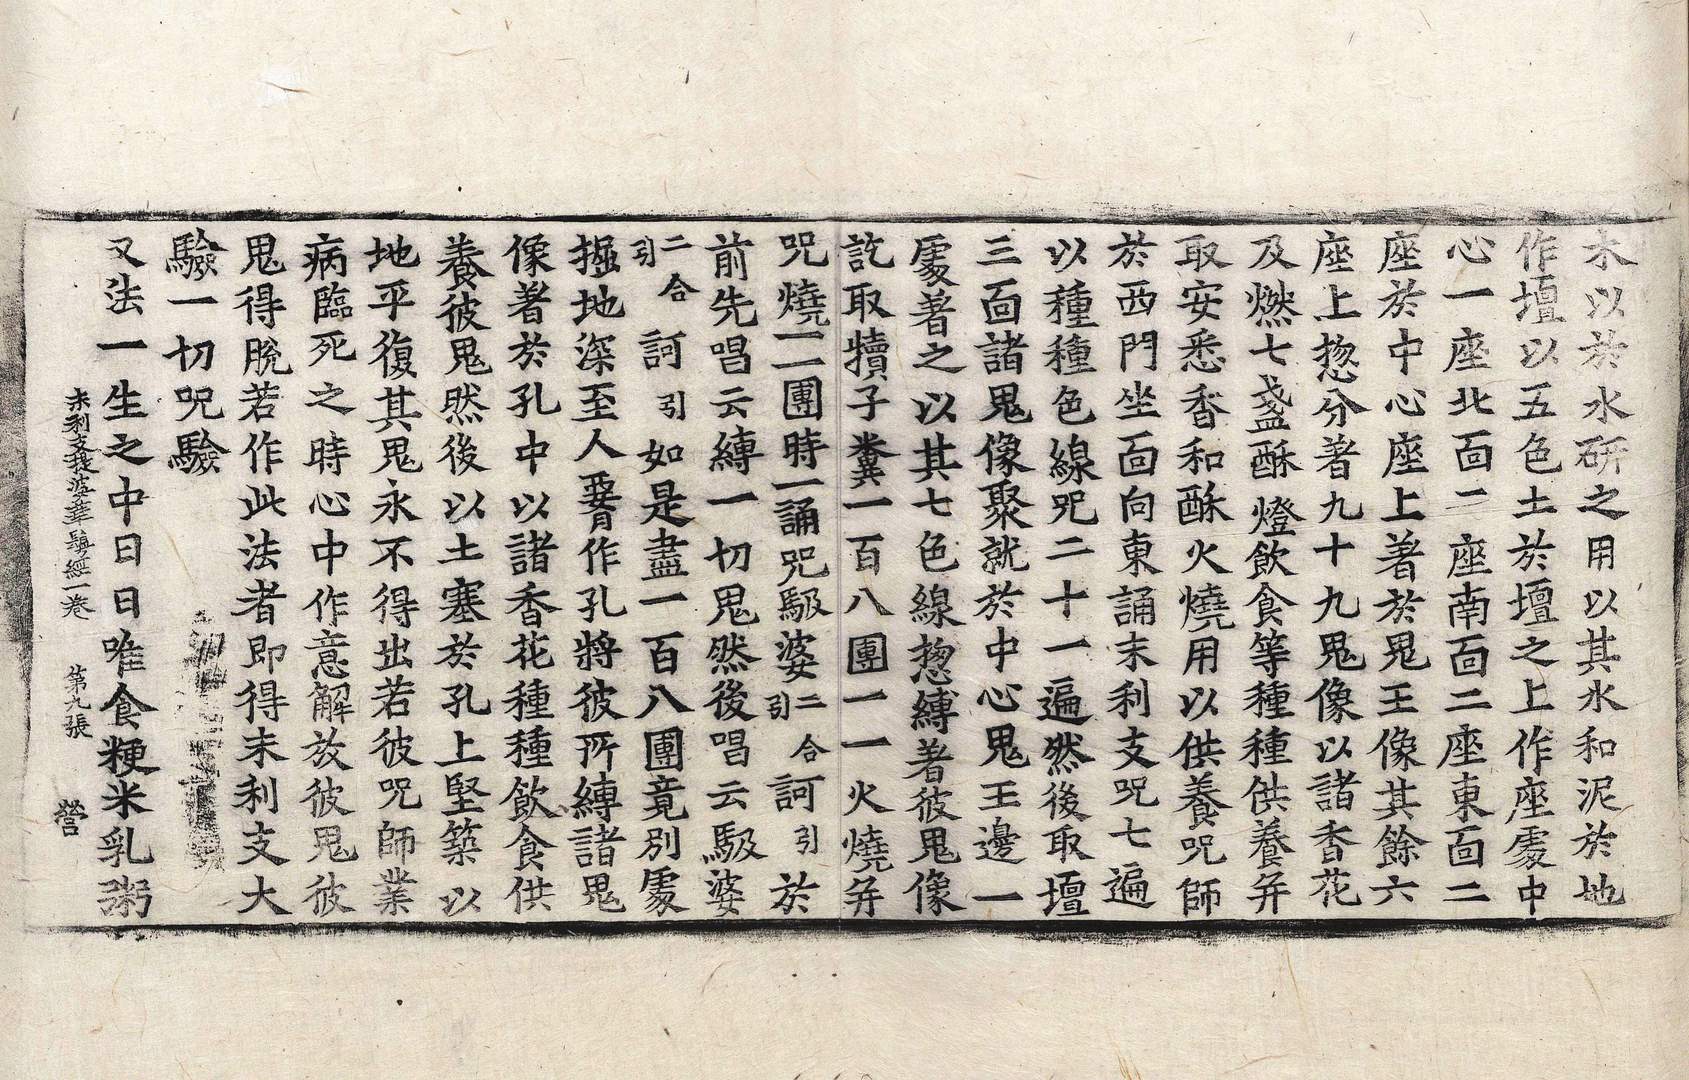 木以於水研之用以其水和泥於地
作壇以五色土於壇之上作座處中
心一座北面二座南面二座東面二
座於中心座上著於鬼王像其餘六
座上惣分著九十九鬼像以諸香花
及燃七盞酥燈飲食等種種供養并
取安悉香和酥火燒用以供養呪師
於西門坐面向東誦末利支呪七遍
以種種色線呪二十一遍然後取壇
三面諸鬼像聚就於中心鬼王邊一
處著之以其七色線惣縛著彼鬼像
訖取犢子糞一百八團一一火燒并
呪燒一一團時一誦呪馺婆二合引訶引於
前先唱云縛一切鬼然後唱云馺婆
二合引訶引如是盡一百八團竟別處
掘地深至人𦝫作孔將彼所縛諸鬼
像著於孔中以諸香花種種飲食供
養彼鬼然後以土塞於孔上堅築以
地平復其鬼永不得出若彼呪師業
病臨死之時心中作意解放彼鬼彼
鬼得脫若作此法者即得末利支大
驗一切呪驗
又法一生之中日日唯食粳米乳粥
末利支提婆華鬘經一卷 第九張 營